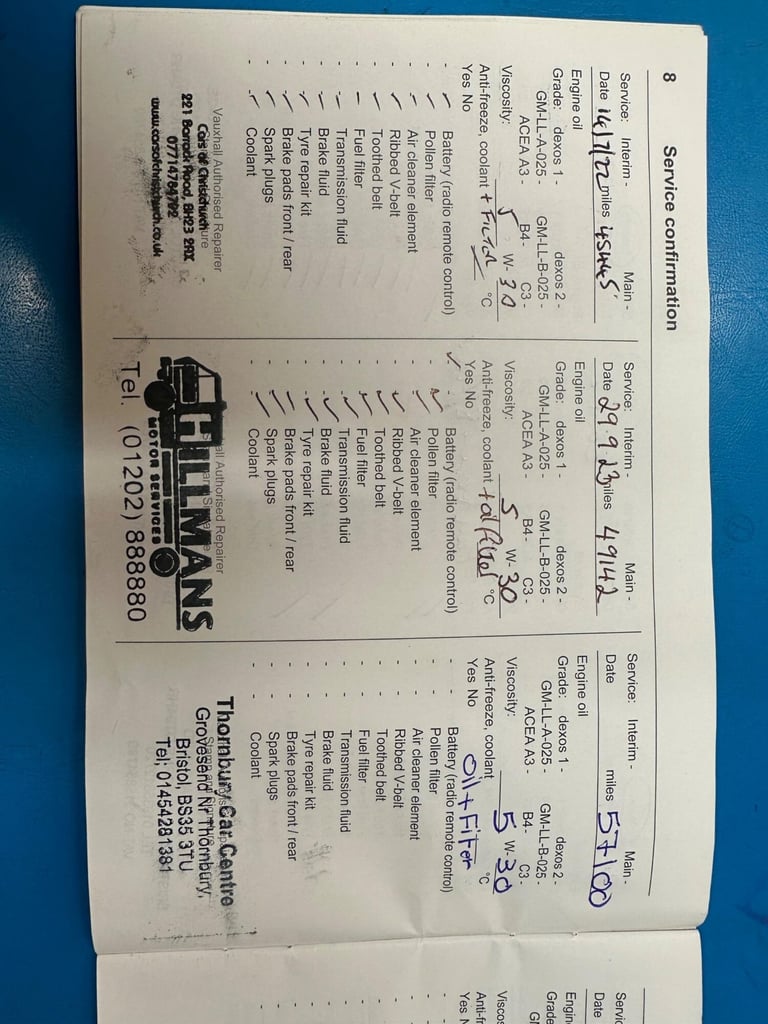 8 Service confirmation
Service: Interim - Main -
Date 14/7/22 miles 45445
Engine oil
Grade: dexos 1 - dexos 2 -
GM-LL-A-025 - GM-LL-B-025 -
ACEA A3 - B4- C3 -
Viscosity: 5 W- 30
Anti-freeze, coolant + FILTER °C
Yes No
- - Battery (radio remote control)
- Pollen filter
- Air cleaner element
- Ribbed V-belt
- Toothed belt
- Fuel filter
- Transmission fluid
- Brake fluid
- Tyre repair kit
- Brake pads front / rear
- Spark plugs
- Coolant
Vauxhall Authorised Repairer
Cars of Christchurch
221 Barrack Road, BH23 2AX
07714784792
www.carsofchristchurch.co.uk
Service: Interim - Main -
Date 29 9 23 miles 49142
Engine oil
Grade: dexos 1 - dexos 2 -
GM-LL-A-025 - GM-LL-B-025 -
ACEA A3 - B4- C3 -
Viscosity: 5 W- 30
Anti-freeze, coolant + oil filter °C
Yes No
- Battery (radio remote control)
- Pollen filter
- Air cleaner element
- Ribbed V-belt
- Toothed belt
- Fuel filter
- Transmission fluid
- Brake fluid
- Tyre repair kit
- Brake pads front / rear
- Spark plugs
- Coolant
Authorised Repairer
HILLMANS
MOTOR SERVICES
Tel. (01202) 888880
Service: Interim - Main -
Date miles 57100
Engine oil
Grade: dexos 1 - dexos 2 -
GM-LL-A-025 - GM-LL-B-025 -
ACEA A3 - B4- C3 -
Viscosity: 5 W- 30
Anti-freeze, coolant °C
Yes No Oil + Filter
- - Battery (radio remote control)
- - Pollen filter
- - Air cleaner element
- - Ribbed V-belt
- - Toothed belt
- - Fuel filter
- - Transmission fluid
- - Brake fluid
- - Tyre repair kit
- - Brake pads front / rear
- - Spark plugs
- - Coolant
Thornbury Car Centre
Grovesend Nr Thornbury,
Bristol, BS35 3TU
Tel; 01454281381